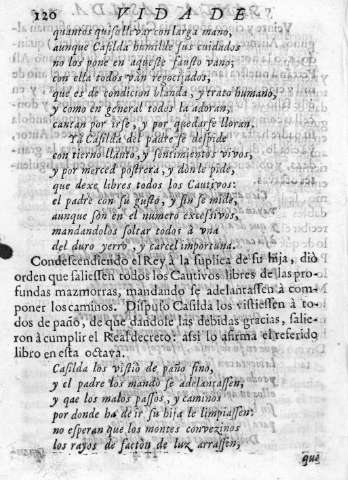 120 VIDA DE
quantos quiso llevar con larga mano,
aunque Casilda humilde sus cuidados
no los pone en aqueste fausto vano;
con ella todos ván regocijados,
que es de condicion blanda, y trato humano,
y como en general todos la adoran,
cantan por irse, y por quedarse lloran.
Yà Casilda del padre se despide
con tierno llanto, y sentimientos vivos,
y por merced postrera, y don le pide,
que dexe libres todos los Cautivos:
el padre con su gusto, y fin se mide,
aunque son en el numero excessivos,
mandandolos soltar todos à vna
del duro yerro, y carcel importuna.
Condescendiendo el Rey à la suplica de su hija, diò
orden que saliessen todos los Cautivos libres de las pro-
fundas mazmorras, mandando se adelantassen à com-
poner los caminos. Dispuso Casilda los vistiessen à to-
dos de paño, de que dandole las debidas gracias, salie-
ron à cumplir el Real decreto: assi lo afirma el referido
libro en esta octava.
Casilda los vistiò de paño fino,
y el padre los mandò se adelantassen,
y que los malos passos, y caminos
por donde ha de ir su hija le limpiassen:
no esperan que los montes convezinos
los rayos de factòn de luz arrassen,
que